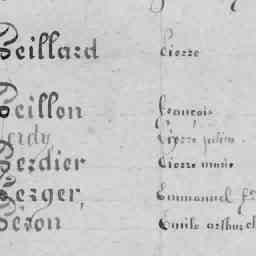 Peillard Pierre
Peillon François
Perdy Pierre julien
Perdier Pierre marie
Perger, Emmanuel fr
Peron Emile arthur